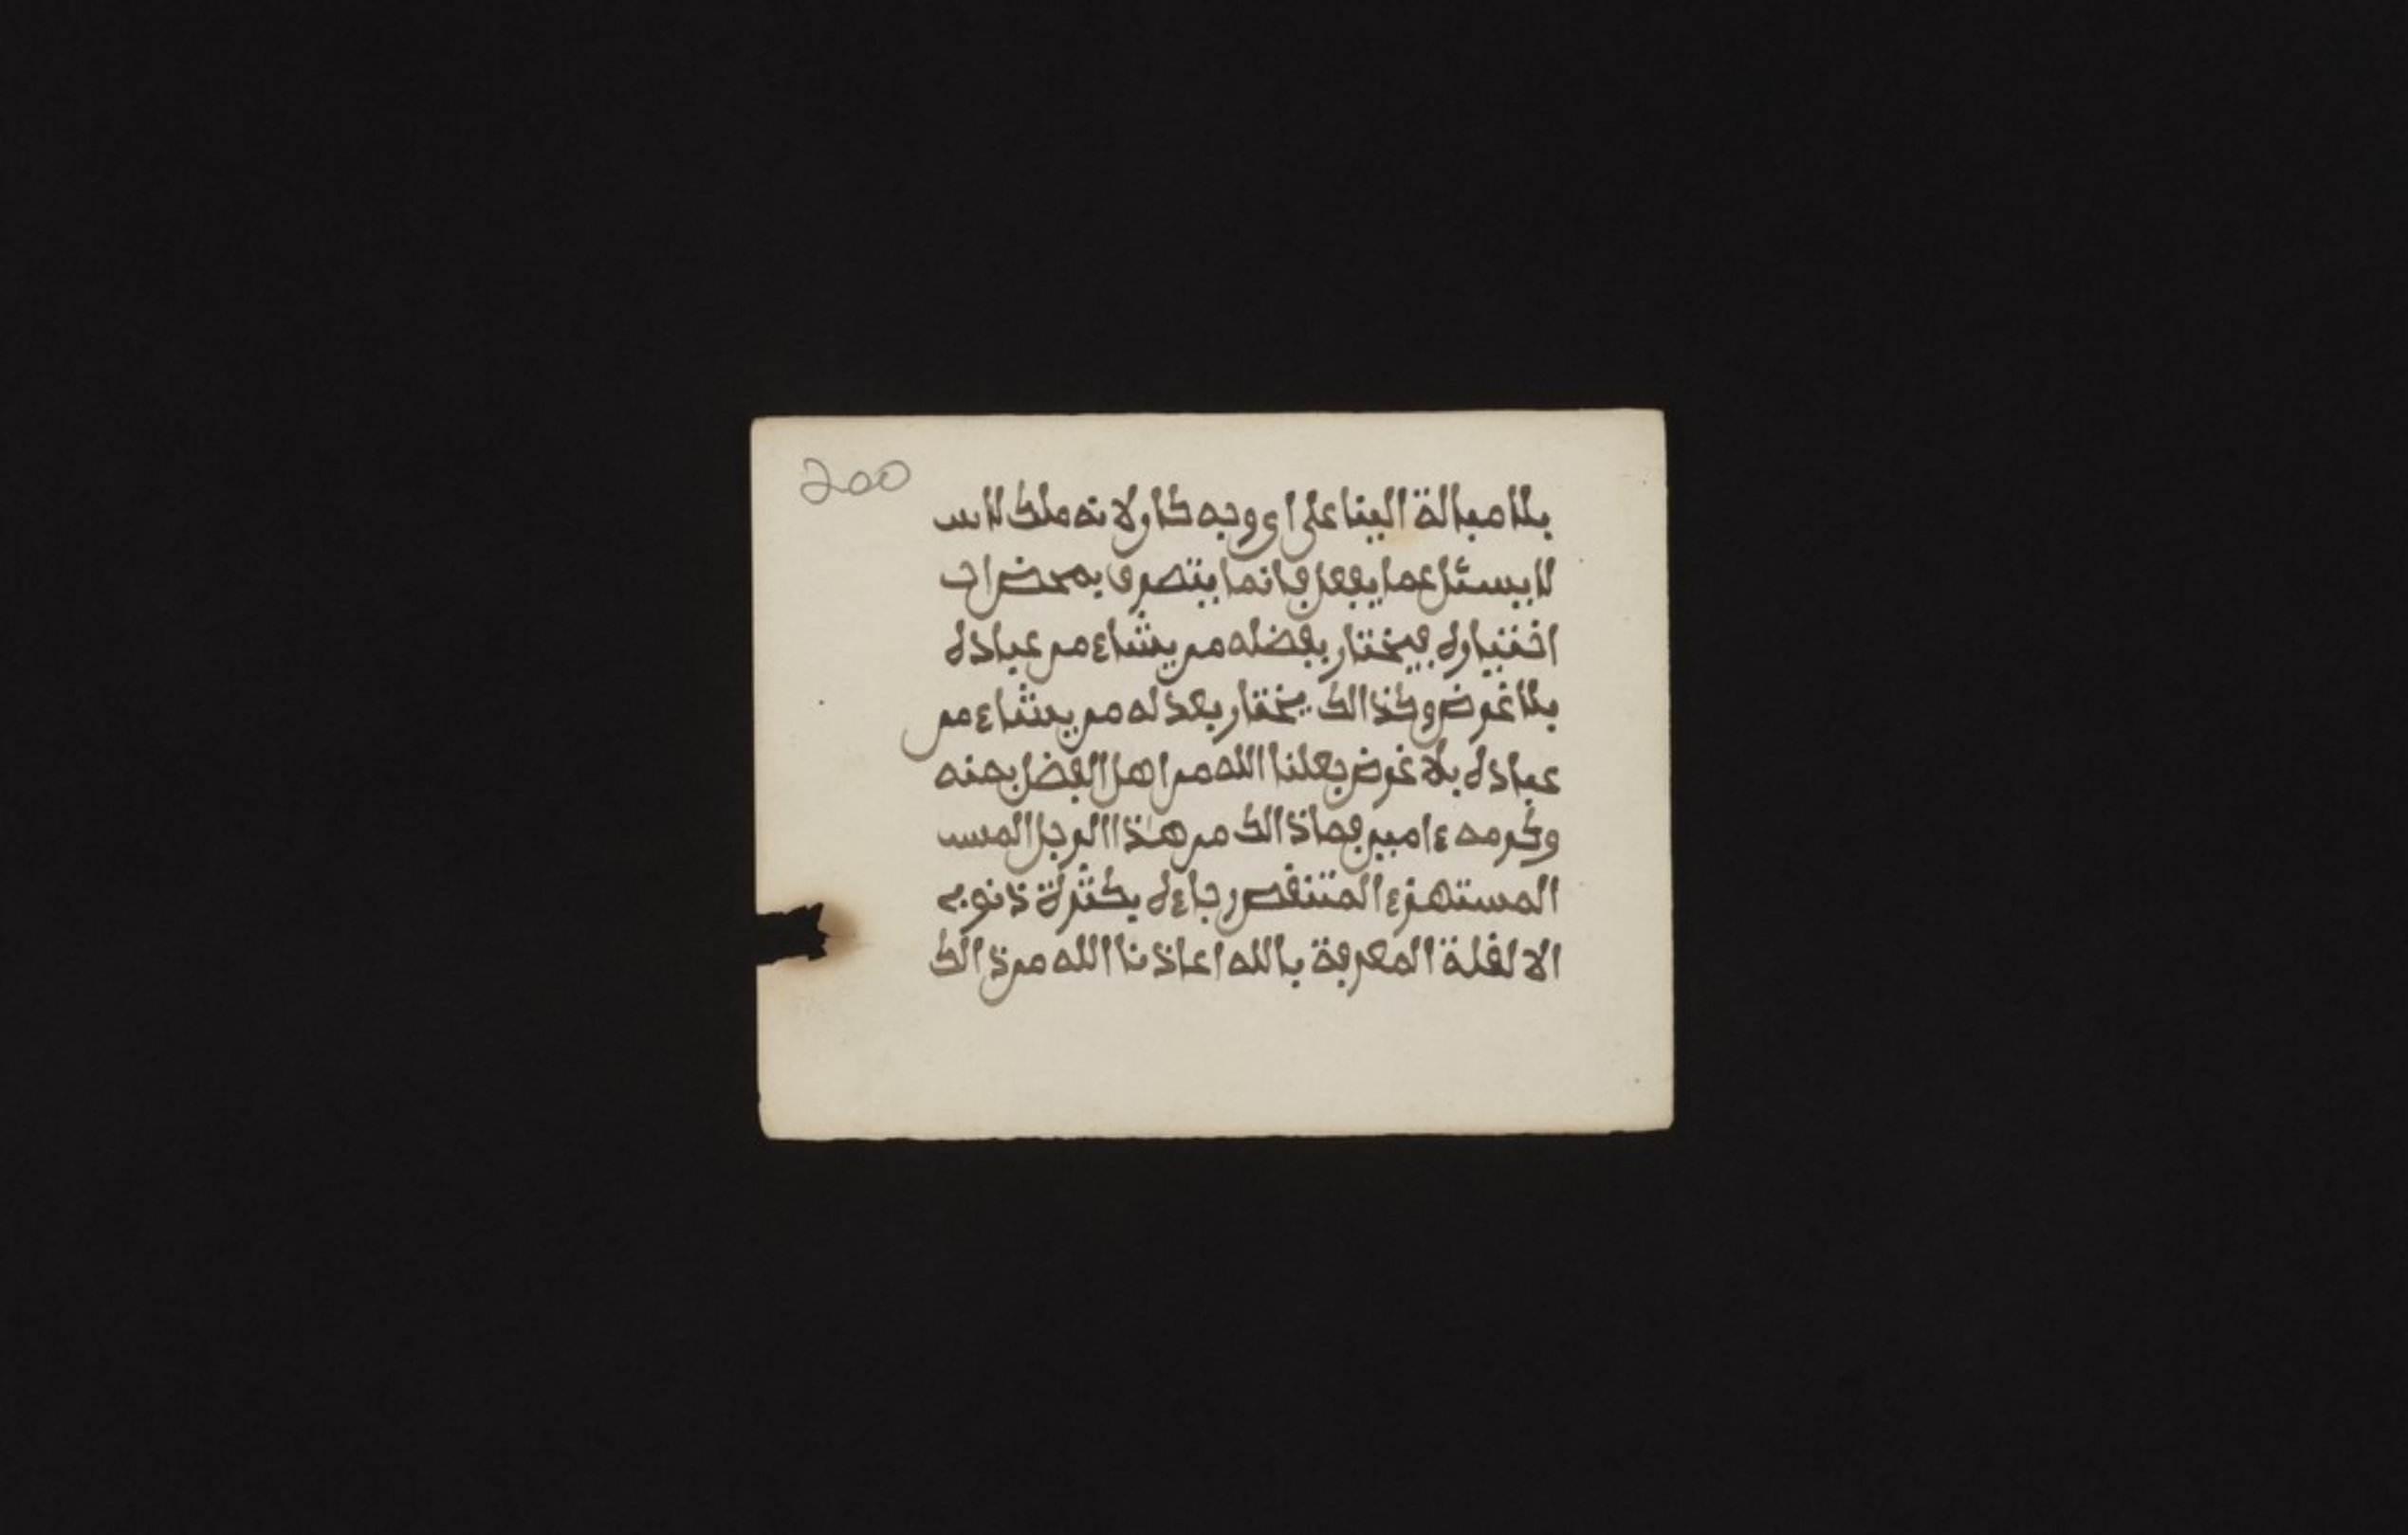 200
بلا مبالة الينا على اى وجه كان ولانه ملك لا يس
لا يسئل عما يفعل فانما يتصرف بمحض ات
اختياره فيختار بفضله من يشاء من عباده
بلا غرض وكذالك يختار بعدله من يشاء من
عباده بلا غرض جعلنا الله من اهل الفضل بمنه
وكرمه ءامين فما ذالك من هذا الرجل المسـ
المستهزء المتنقص رجاءه بكثرة ذنوبه
الا لقلة المعرفة بالله اعاذنا الله من ذالك